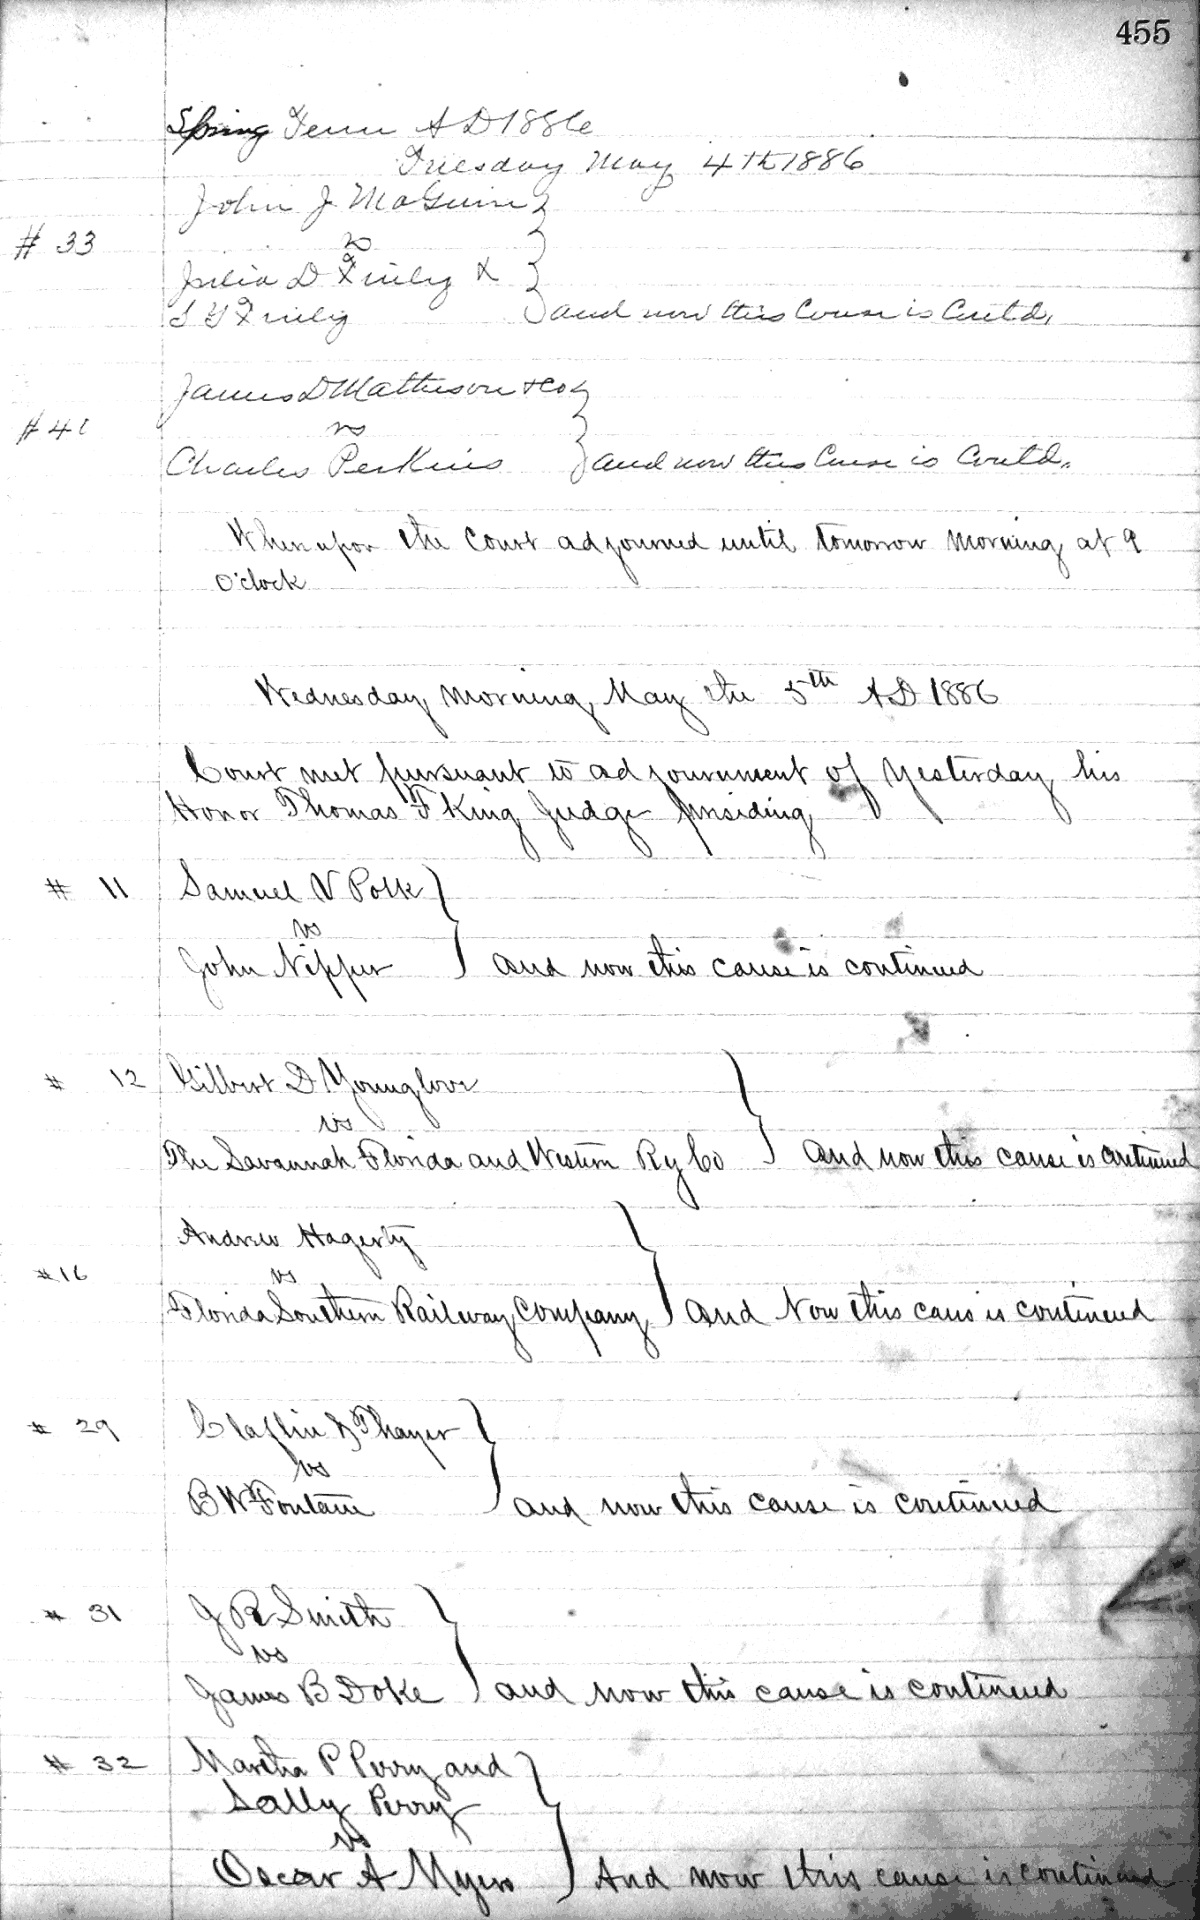 455
Spring Term A D 1886
Tuesday May 4th 1886
John J McGuire
# 33
vs
Julia D Finley &
S Y Finley and now this Cause is Contd.
James D Matheson & Co
#41
vs
Charles Perkins and now this Cause is Contd.
Whenupon the Court adjourned until tomorrow morning at 9
O'clock
Wednesday morning May the 5th A D 1886
Court met pursuant to adjournment of yesterday his
Honor Thomas F King Judge presiding
# 11 Samuel N Polk
vs
John Nipper and now this cause is continued
# 12 Gilbert D Younglove
vs
The Savannah Florida and Western Ry Co and now this cause is continued
Andrew Hagerty
#16 vs
Florida Southern Railway Company and Now this caus is continued
# 29 Claflin & Thayer
vs
B W Fontain and now this cause is continued
# 31 J R Smith
vs
James B Doke and now this cause is continued
# 32 Martha P Perry and
Sally Perry
vs
Oscar A Myers And now this cause is continued